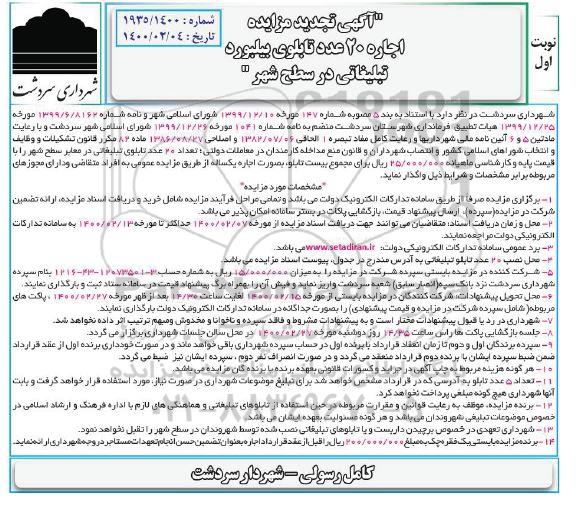 نوبت
اول
"آگهی تجدید مزایده
اجاره ۲۰ عدد تابلوی بیلبورد
تبلیغاتی در سطح شهر"
شماره : ۱۹۳۵/۱۴۰۰
تاریخ : ۱۴۰۰/۰۲/۰۴
شهرداری سردشت
شهرداری سردشت در نظر دارد با استناد به بند ۵ مصوبه شماره ۱۴۷ مورخه ۱۳۹۹/۱۲/۱۰ شورای اسلامی شهر و نامه شماره ۱۳۹۹/۶/۸۱۶۲ مورخه
۱۳۹۹/۱۲/۲۵ هیات تطبیق فرمانداری شهرستان سردشت منضم به نامه شماره ۱۰۴۱ مورخه ۱۳۹۹/۱۲/۲۶ شورای اسلامی شهر سردشت و با رعایت
مادتین ۵ و ۶ آئین نامه مالی شهرداریها و رعایت کامل مفاد تبصره ۱ الحاقی ۱۳۸۲/۰۷/۰۶ و اصلاحی ۱۳۸۶/۰۸/۲۷ ماده ۸۴ مکرر قانون تشکیلات و وظایف
و انتخاب شوراهای اسلامی کشور و انتصاب شهرداران و قانون منع مداخله کارمندان در معاملات دولتی ؛ تعداد ۲۰ عدد تابلوی تبلیغاتی در معابر سطح شهر را با
قیمت پایه و کارشناسی ماهیانه ۲۵/۰۰۰/۰۰۰ ریال برای مجموع بیست تابلو، بصورت اجاره یکساله از طریق مزایده عمومی به افراد متقاضی ودارای مجوزهای
مربوطه برابر مشخصات و شرایط ذیل واگذار نماید.
"مشخصات مورد مزایده"
۱- برگزاری مزایده صرفا از طریق سامانه تدارکات الکترونیک دولت می باشد وتمامی مراحل فرآیند مزایده شامل خرید و دریافت اسناد مزایده، ارائه تضمین
شرکت در مزایده(سپرده)، ارسال پیشنهاد قیمت، بازگشایی پاکات در بستر سامانه امکان پذیر می باشد.
۲- محل و زمان دریافت اسناد: متقاضیان می توانند جهت دریافت اسناد مزایده از مورخه ۱۴۰۰/۰۲/۰۷ حداکثر تا مورخه ۱۴۰۰/۰۲/۱۳ به سامانه تدارکات
الکترونیکی دولت مراجعه نمایند.
۳- برد عمومی سامانه تدارکات الکترونیکی دولت: www.setadiran.ir می باشد.
۴- محل نصب ۲۰ عدد تابلو تبلیغاتی به آدرس مندرج در جدول، پیوست اسناد مزایده می باشد.
۵- شرکت کننده در مزایده بایستی سپرده شرکت در مزایده را به میزان ۱۵/۰۰۰/۰۰۰ ریال به شماره حساب ۳-۱۲۰۷۳۵۰۱-۴۳-۱۲۱۶ بنام سپرده
شهرداری سردشت نزد بانک سپه(انصار سابق) شعبه سردشت واریز نماید و فیش آن را بهمراه برگ پیشنهاد قیمت در سامانه ستاد ثبت و بارگذاری نمایند.
۶- محل تحویل پیشنهادات: شرکت کنندگان در مزایده بایستی از مورخه ۱۴۰۰/۰۲/۱۵ لغایت ساعت ۱۴/۳۰ بعد از ظهر مورخه ۱۴۰۰/۰۲/۲۷ ، پاکت های
مربوطه( شامل سپرده شرکت در مزایده و قیمت پیشنهادی ) را بصورت جداگانه در سامانه تدارکات الکترونیک دولت بارگذاری نمایند.
۷- شهرداری در رد یا قبول پیشنهادات مختار است و به پیشنهادات مشروط و فاقد سپرده و ناخوانا و مخدوش ومبهم ترتیب اثر داده نخواهد شد.
۸- جلسه بازگشایی پاکت ها راس ساعت ۱۴/۳۵ روز دوشنبه مورخه ۱۴۰۰/۰۲/۲۷ در محل سالن جلسات شهرداری برگزار می گردد.
۹- سپرده برندگان اول و دوم تا زمان انعقاد قرارداد با برنده اول در حساب سپرده شهرداری باقی خواهد ماند و در صورت خودداری برنده اول از عقد قرارداد
ضمن ضبط سپرده ایشان با برنده دوم قرارداد منعقد می گردد و در صورت انصراف نفر دوم ، سپرده ایشان نیز ضبط می گردد.
۱۰- هر گونه هزینه مربوط به چاپ آگهی در جراید و کسورات قانونی بعهده برنده یا برنده گان مزایده می باشد.
۱۱- تعداد ۵ عدد تابلو به آدرسی که در قرارداد مشخص خواهد شد برای تبلیغ موضوعات شهرداری در صورت نیاز، مورد استفاده قرار خواهد گرفت و بابت
آنها شهرداری هیچ گونه مبلغی پرداخت نخواهد کرد.
۱۲- برنده مزایده، موظف به رعایت قوانین و مقررات مربوطه درحین استفاده از تابلوهای تبلیغاتی و هماهنگی های لازم با اداره فرهنگ و ارشاد اسلامی در
خصوص موضوعات تبلیغی شهروندان می باشد و هر گونه مسئولیت بعهده ایشان می باشد.
۱۳- شهرداری تعهدی در خصوص برچیدن داربست و یا تابلوهای تبلیغاتی نصب شده توسط شهروندان در سطح شهر را تقبل نخواهد نمود.
۱۴- برنده مزایده بایستی یک فقره چک به مبلغ ۲۰۰/۰۰۰/۰۰۰ ریال را قبل از عقد قرارداد اجاره بعنوان تضمین حسن انجام تعهدات مستاجر در وجه شهرداری ارائه نماید.
کامل رسولی – شهردار سردشت